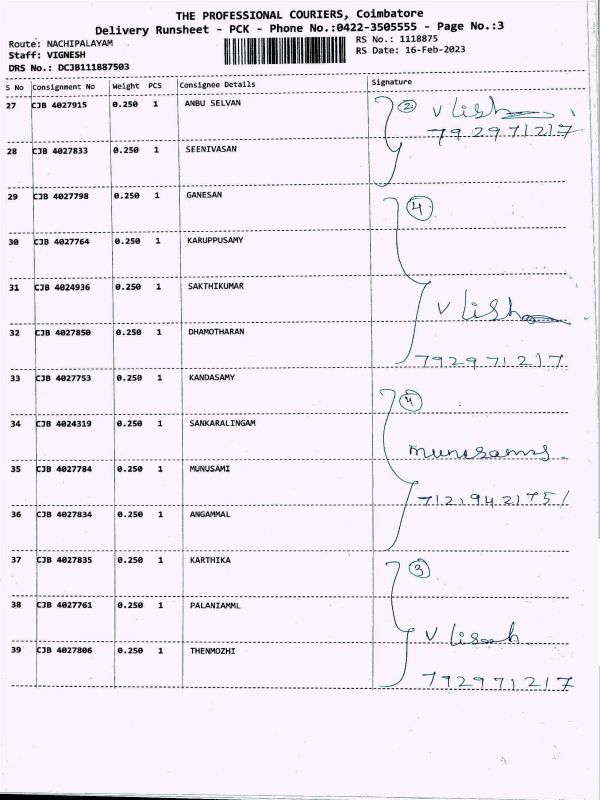 THE PROFESSIONAL COURIERS, Coimbatore
Delivery Runsheet - PCK - Phone No.:0422-3505555 - Page No.:3
Route: NACHIPALAYAM
RS No.: 1118875
Staff: VIGNESH
RS Date: 16-Feb-2023
DRS No.: DCJB111887503
S No Consignment No Weight PCS Consignee Details Signature
27 CJB 4027915 0.250 1 ANBU SELVAN 2
792971217
28 CJB 4027833 0.250 1 SEENIVASAN
29 CJB 4027798 0.250 1 GANESAN 4
30 CJB 4027764 0.250 1 KARUPPUSAMY
31 CJB 4024936 0.250 1 SAKTHIKUMAR
32 CJB 4027850 0.250 1 DHAMOTHARAN
792971217
33 CJB 4027753 0.250 1 KANDASAMY 4
34 CJB 4024319 0.250 1 SANKARALINGAM
munusamy.
35 CJB 4027784 0.250 1 MUNUSAMI
7121942175/
36 CJB 4027834 0.250 1 ANGAMMAL
37 CJB 4027835 0.250 1 KARTHIKA 3
38 CJB 4027761 0.250 1 PALANIAMML
39 CJB 4027806 0.250 1 THENMOZHI
792971217